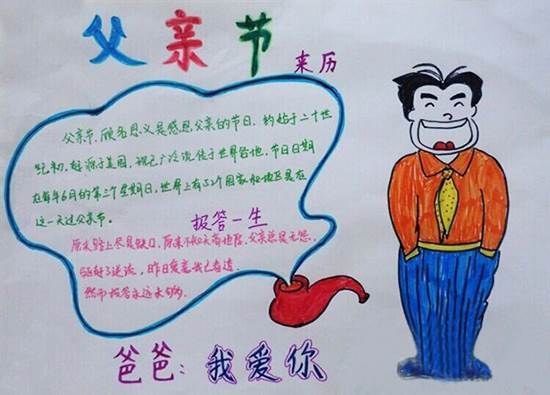 父亲节
来历
父亲节，顾名思义是感恩父亲的节日。约始于二十世
纪初，起源于美国，现已广泛流传于世界各地，节日日期
在每年6月的第三个星期日，世界上有52个国家和地区是在
这一天过父亲节。
报答一生
原来路上尽是缺口，原来不如
父亲总是无怨。
昨日
然而报答永远未够
爸爸：我爱你